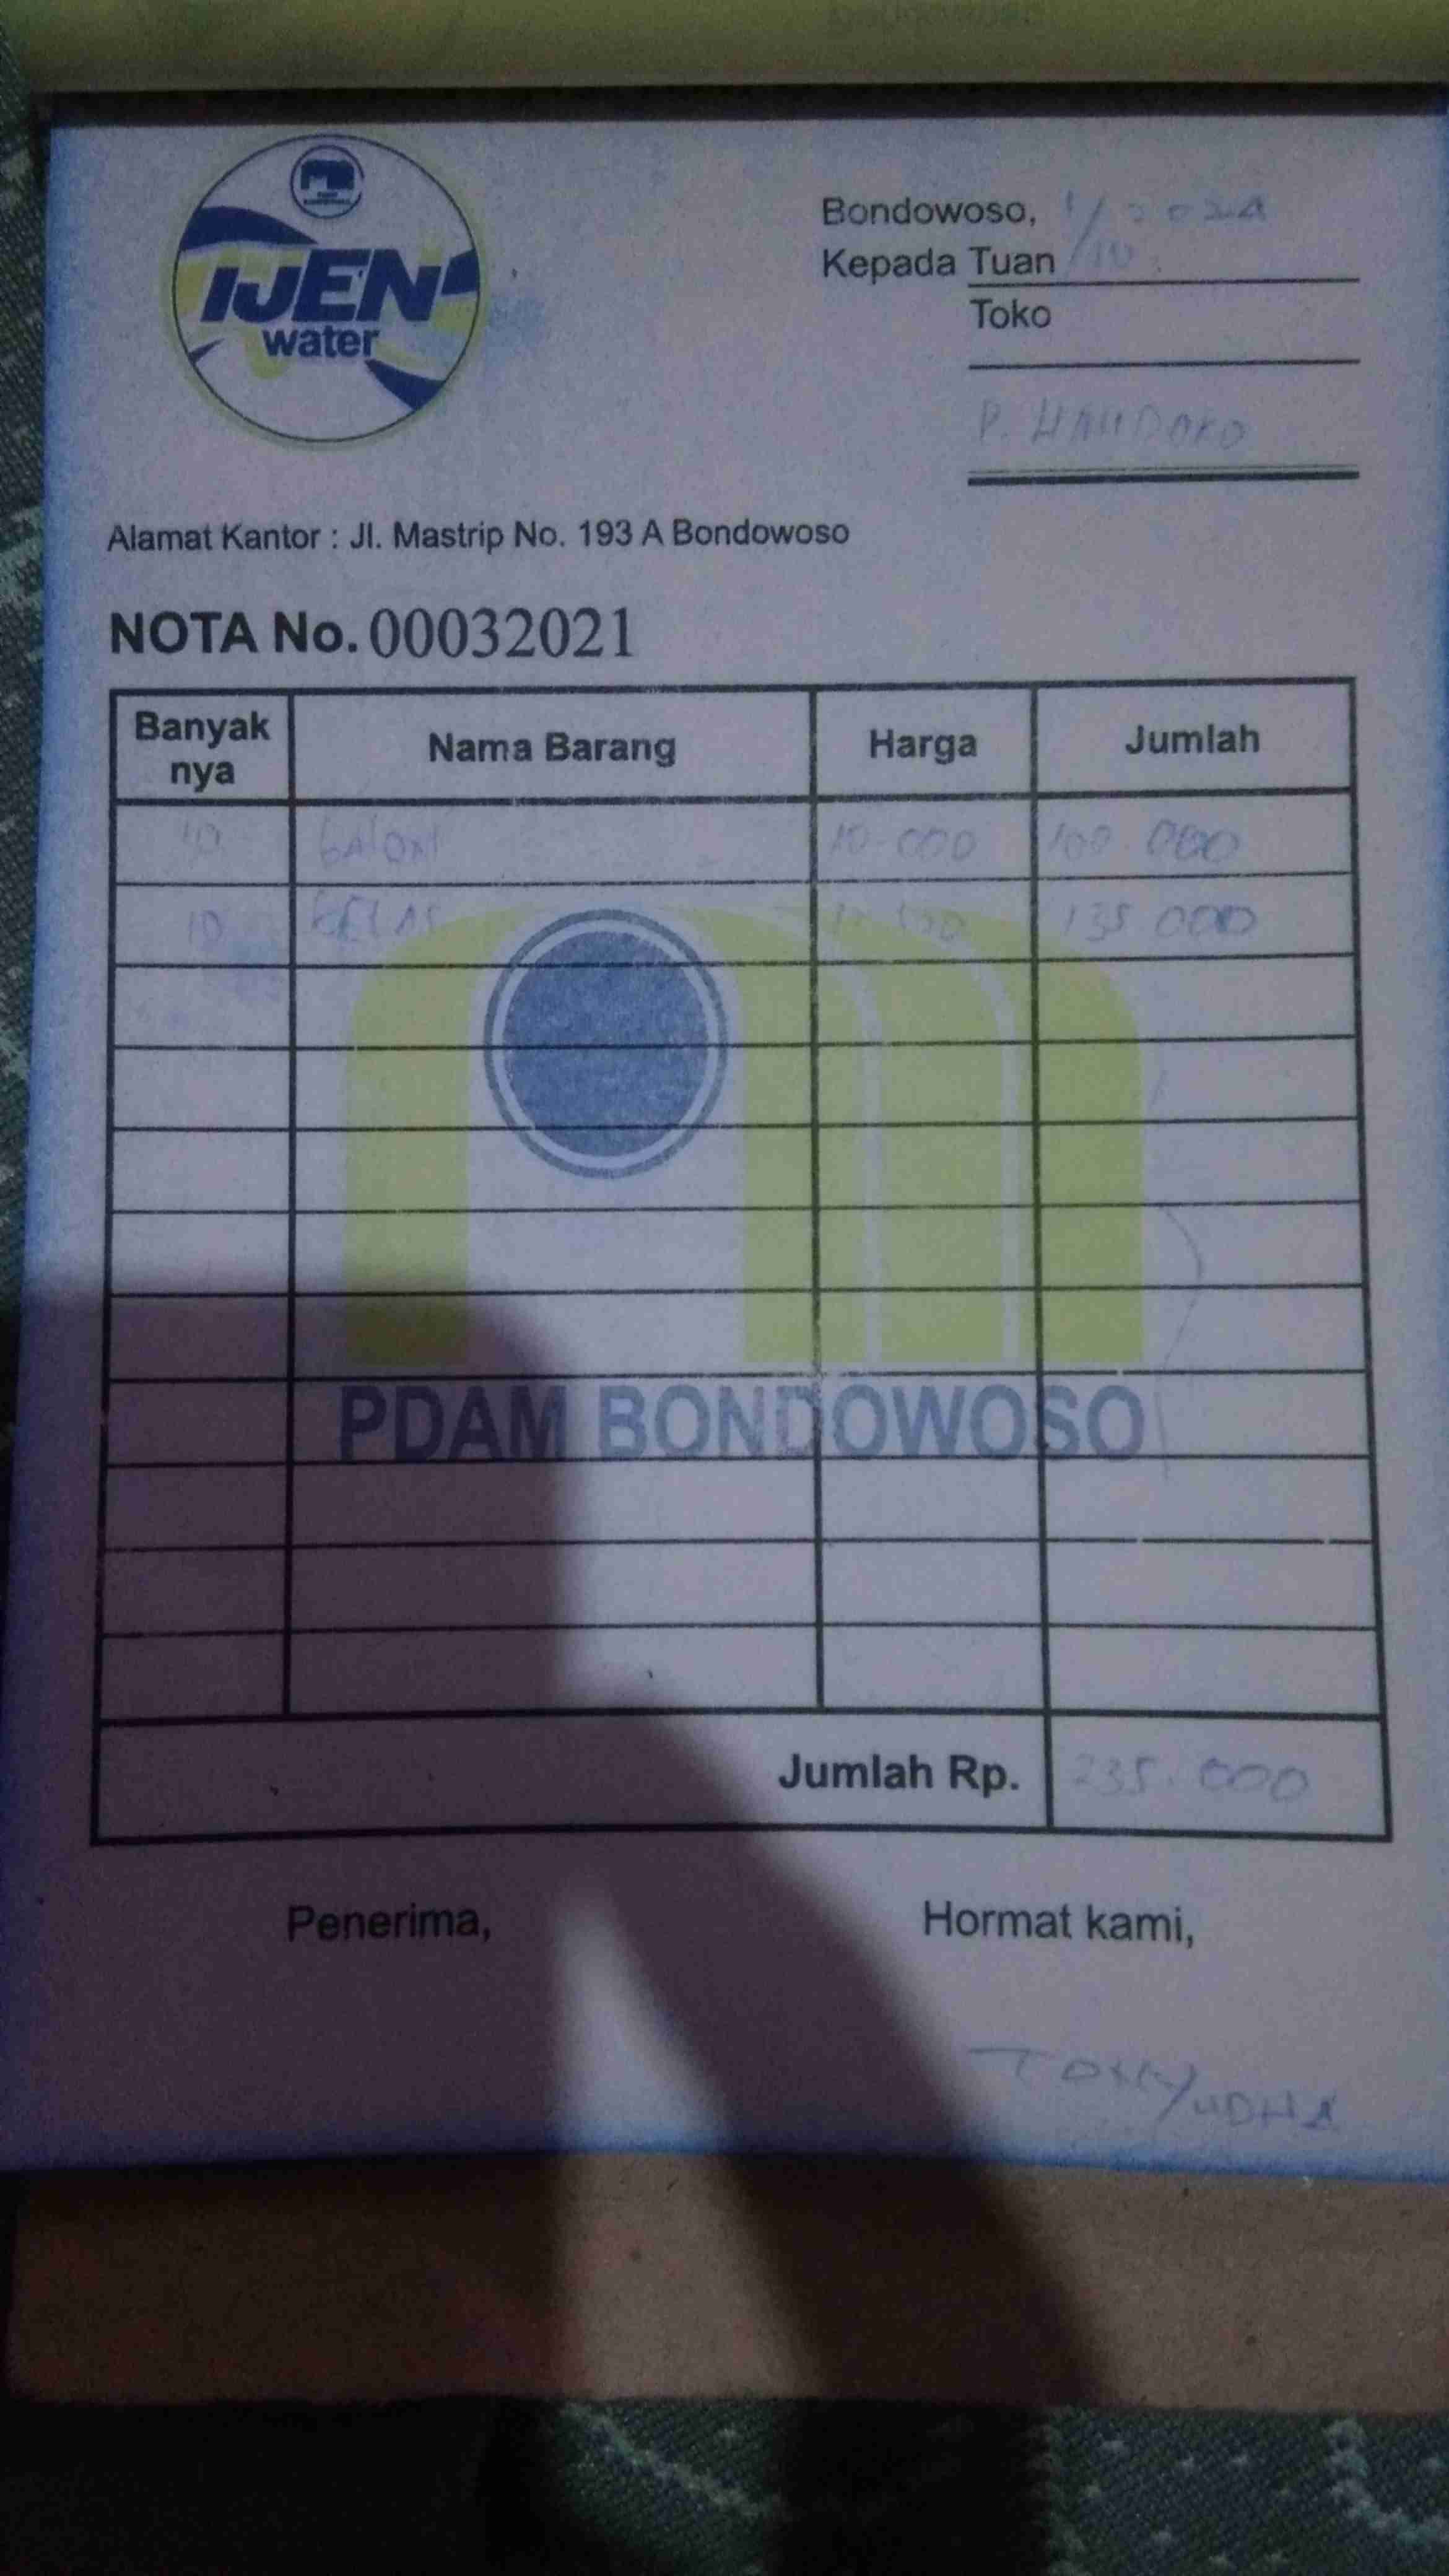 IJEN
water
Bondowoso, 1/10 2024
Kepada Tuan
Toko
P. HANDOKO
Alamat Kantor : Jl. Mastrip No. 193 A Bondowoso
NOTA No. 00032021
Banyak nya Nama Barang Harga Jumlah
10 GALON 10.000 100.000
10 GELAS 135.000
PDAM BONDOWOSO
Jumlah Rp. 235.000
Penerima, Hormat kami,